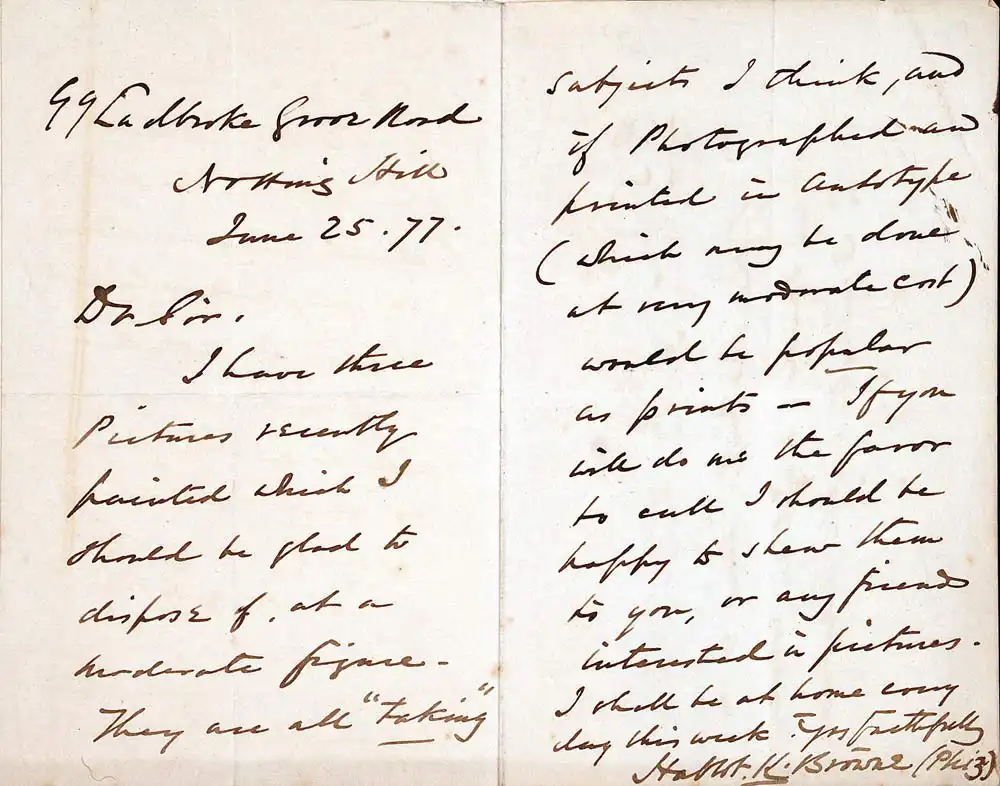 99 Ladbroke Grove Road
Notting Hill
June 25 . 77 .
Dr Sir .
I have three
Pictures recently
painted which I
should be glad to
dispose of , at a
moderate figure -
They are all "taking"
subjects I think , and
if Photographed and
printed in Autotype
(which may be done
at very moderate cost)
would be popular
as prints — If you
will do me the favor
to call I should be
happy to shew them
to you, or any friend
interested in pictures .
I shall be at home every
day this week . Yrs faithfully
Hablot . K . Browne (Phiz)